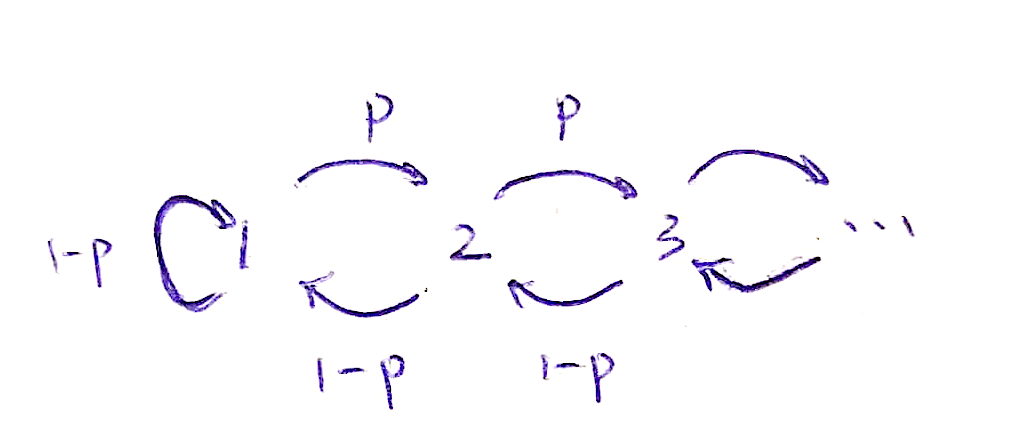 p p
1-p 1 2 3 ...
1-p 1-p